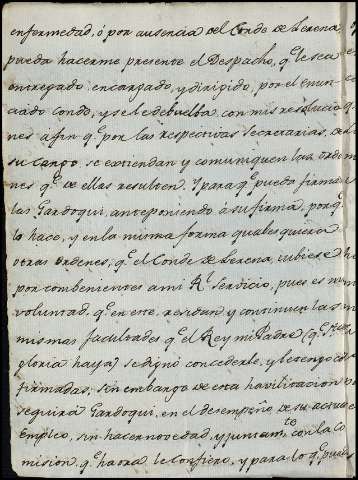 enfermedad, ó por ausencia del Conde de Lerena,
pueda hacerme presente el Despacho, q.e le sea
entregado encargado, y dirigido, por el enun-
ciado conde, y se le debuelba con mis resolucio
nes afin q.e por las respectivas Secretarias, de
su cargo, se extiendan y comuniquen las orde
nes q.e de ellas resulten. Y para q.e pueda firmar
las Gardoqui, anteponiendo á su firma, por q.n
lo hace, y en la misma forma qualesquiera
otras ordenes, q.e el Conde de Lerena, tubiese
por combenientes a mi R.l Servicio, pues es mi
voluntad, q.e en este, residan y continuen las
mismas facultades q.e el Rey mi Padre (q.e
gloria haya) se dignó concederle, y le tengo con
firmadas; sin embargo de esta havilitacion
seguirá Gardoqui, en el desempeño de su actual
Empleo, sin hacer novedad, y juntam.te con la co
mision q.e haora le confiero, y para lo q.e